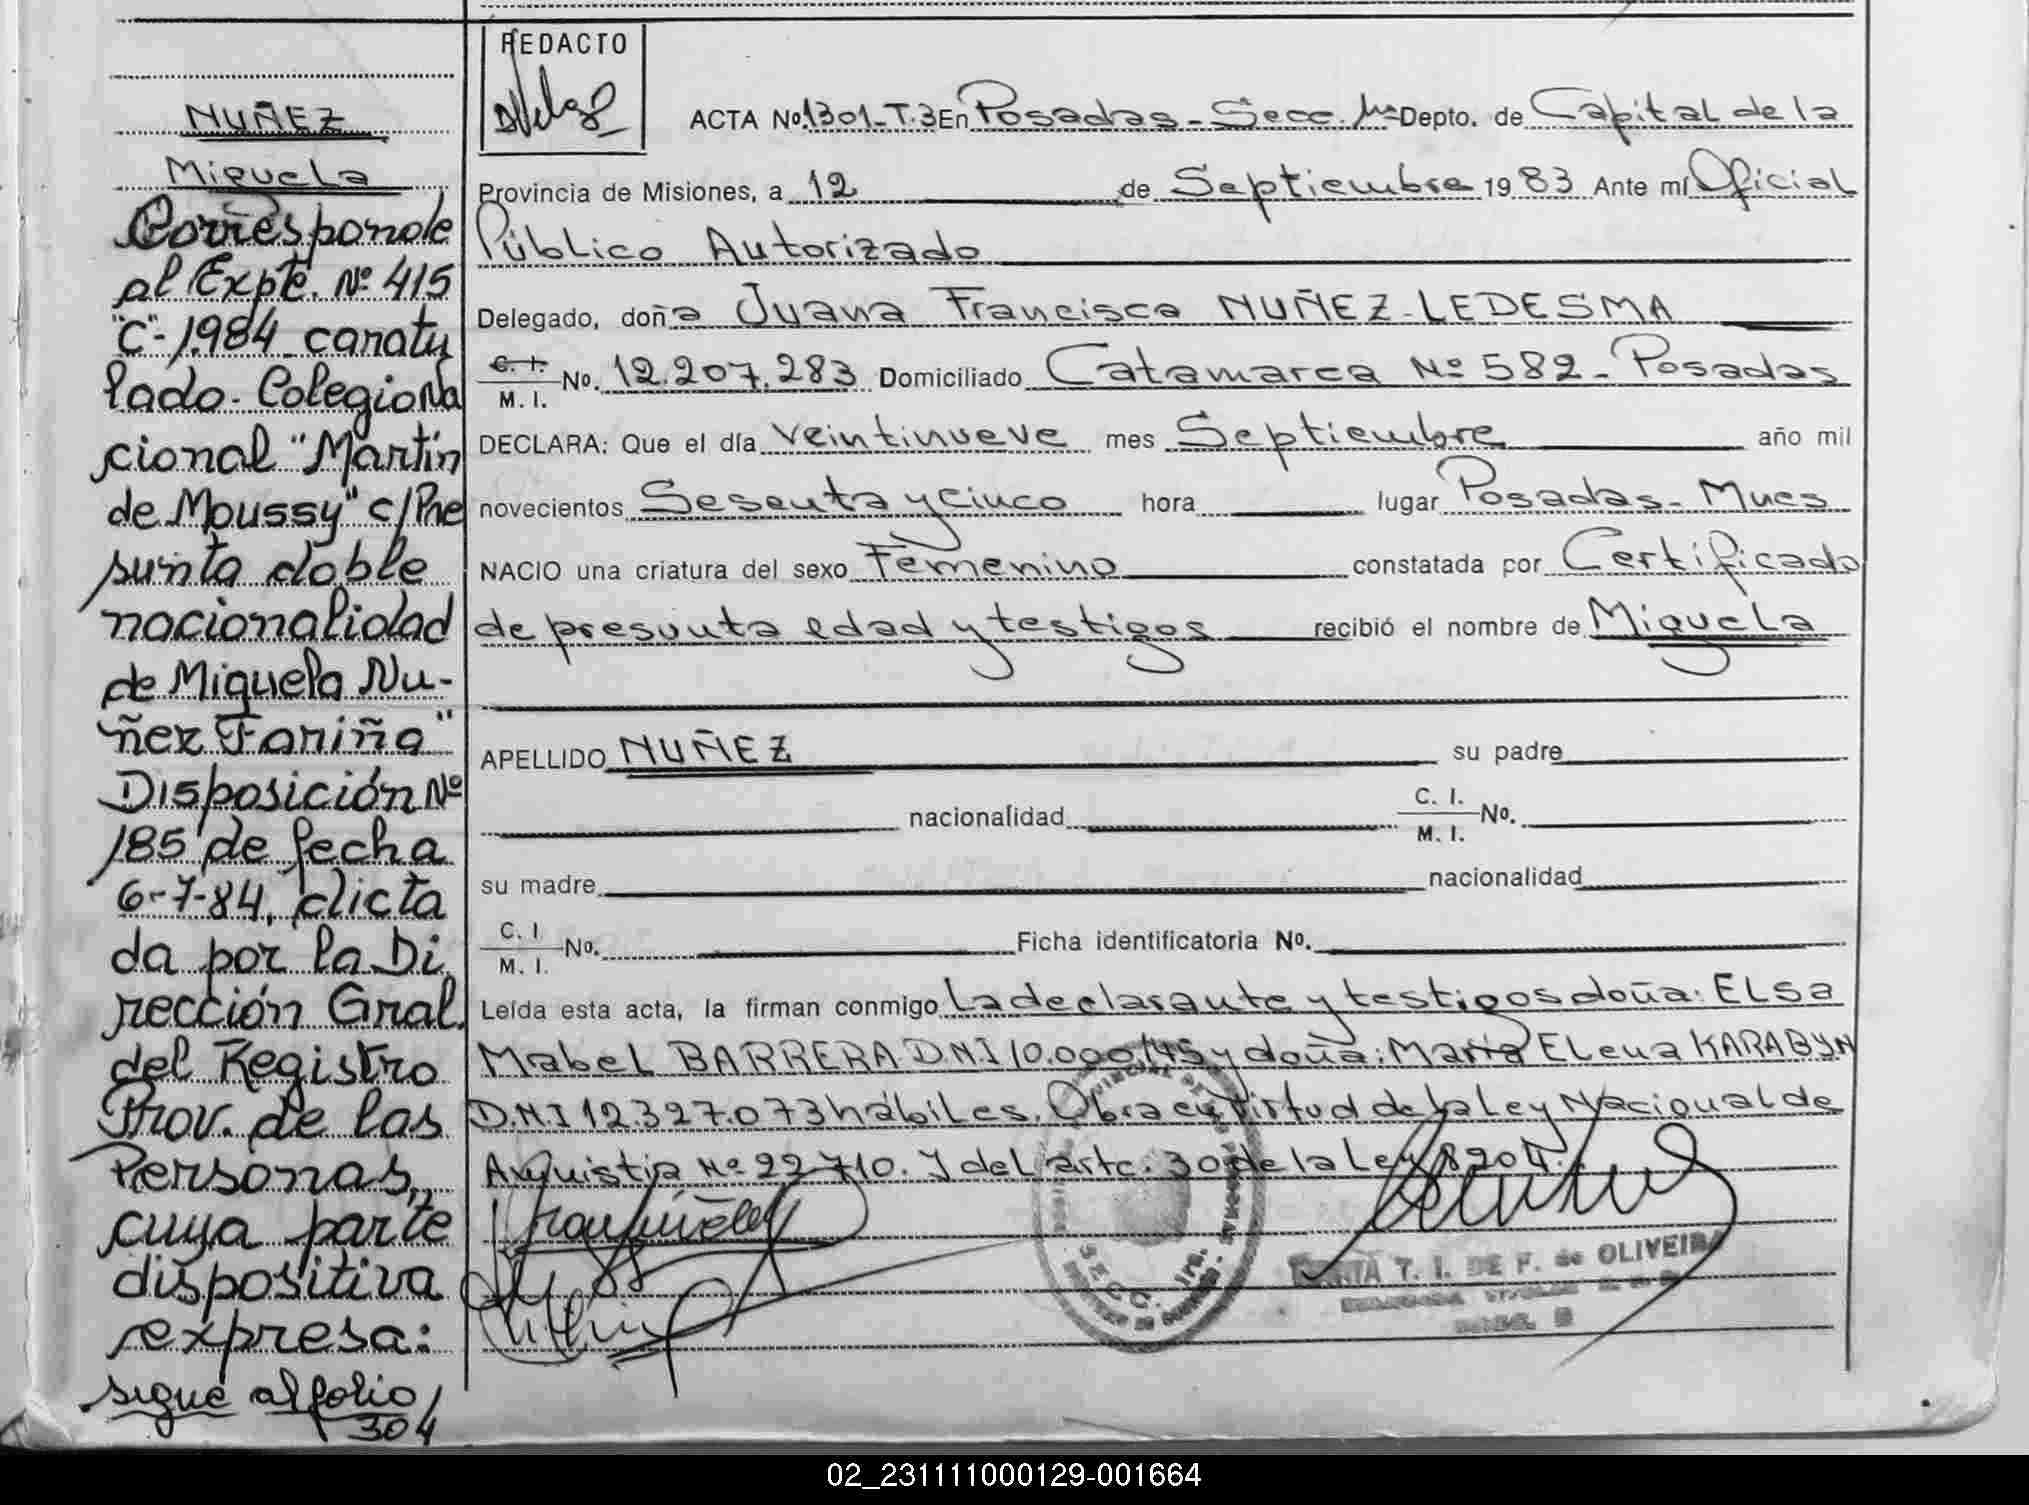 NUÑEZ
Miguela
Corresponde
al Expte. Nº 415
"C"-1.984 caratu
lado. Colegio Na
cional "Martín
de Moussy" c/Pre
sunta doble
nacionalidad
de Miguela Nu-
ñez Fariña"
Disposición Nº
185 de fecha
6-7-84, dicta
da por la Di
rección Gral.
del Registro
Prov. de las
Personas,
cuya parte
dispositiva
expresa:
sigue al folio
304
REDACTO
ACTA Nº 1301-T.3 En Posadas - Secc. 1ra Depto. de Capital de la
Provincia de Misiones, a 12 de Septiembre 1983 Ante mí Oficial
Público Autorizado
Delegado, doña Juana Francisca NUÑEZ-LEDESMA
C. I. / M. I. Nº. 12.207.283 Domiciliado Catamarca Nº 582 - Posadas
DECLARA: Que el día veintinueve mes Septiembre año mil
novecientos Sesenta y cinco hora lugar Posadas - Mnes
NACIO una criatura del sexo Femenino constatada por Certificado
de presunta edad y testigos recibió el nombre de Miguela
APELLIDO NUÑEZ su padre
nacionalidad C. I. / M. I. Nº.
su madre nacionalidad
C. I. / M. I. Nº. Ficha identificatoria Nº.
Leída esta acta, la firman conmigo la declarante y testigos doña: Elsa
Mabel BARRERA D.N.I 10.000.145 y doña: María Elena KARABYN
D.N.I 12.327.073 hábiles. Obra en virtud de la Ley Nacional de
Amnistia Nº 22710. y del artc. 30 de la Ley 8204.
SECC. 1ra.
T. I. DE F. de OLIVEIRA
02_231111000129-001664